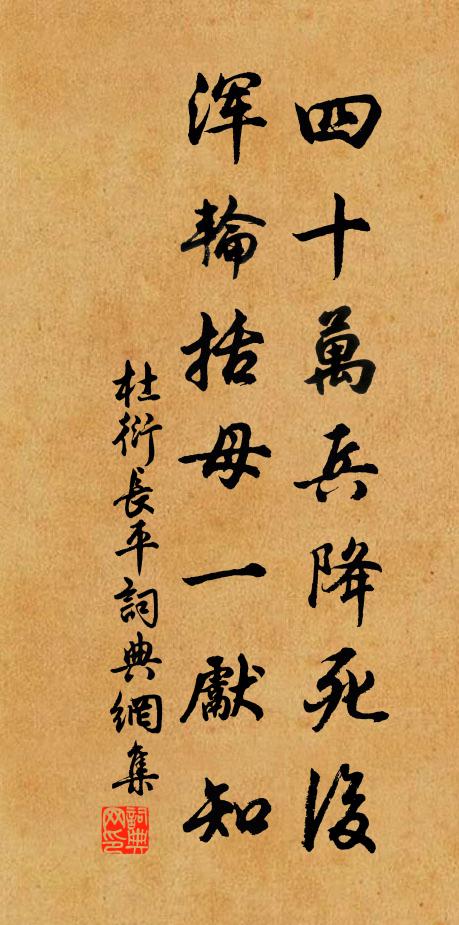 四十萬兵降死後
渾輪括母一獻知
杜衍長平詞典網集
詞典網印